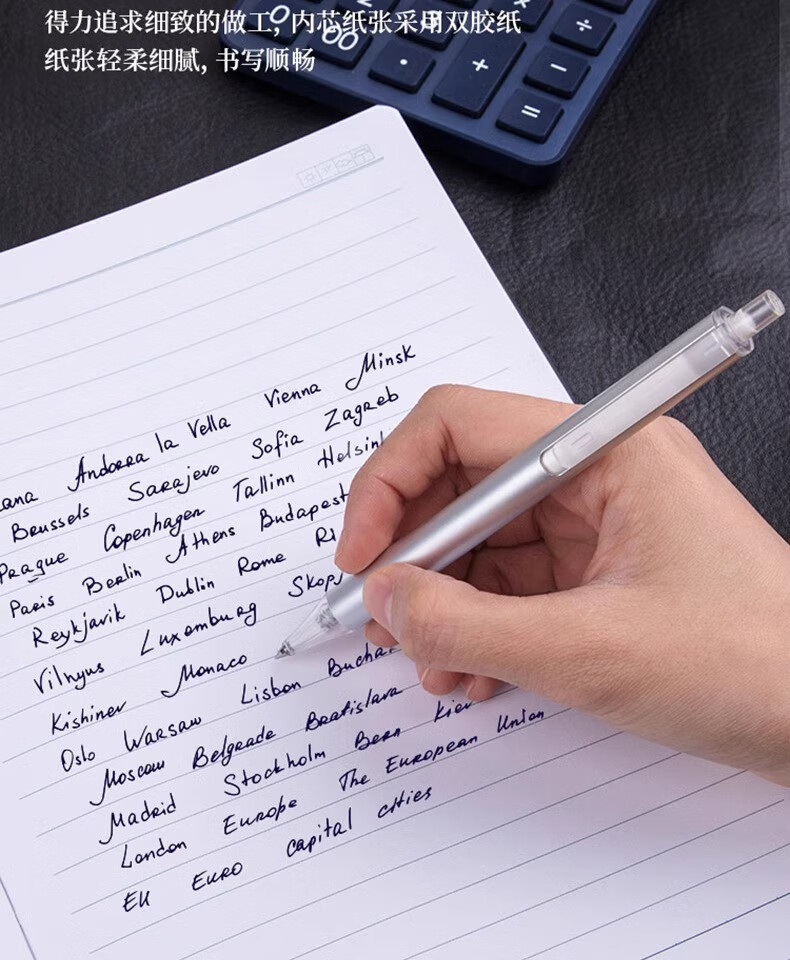 得力追求细致的做工, 内芯纸张采用双胶纸
纸张轻柔细腻, 书写顺畅
00
·
+
×
÷
−
=
ana Andorra la Vella Vienna Minsk
Brussels Sarajevo Sofia Zagreb
Prague Copenhagen Tallinn Helsin
Paris Berlin Athens Budapest
Reykjavik Dublin Rome Ri
Vilnyus Luxemburg Skop
Kishinev Monaco
Oslo Warsaw Lisbon Buchar
Moscow Belgrade Bratislava
Madrid Stockholm Bern Kiev
London Europe The European Union
EU EURO capital cities